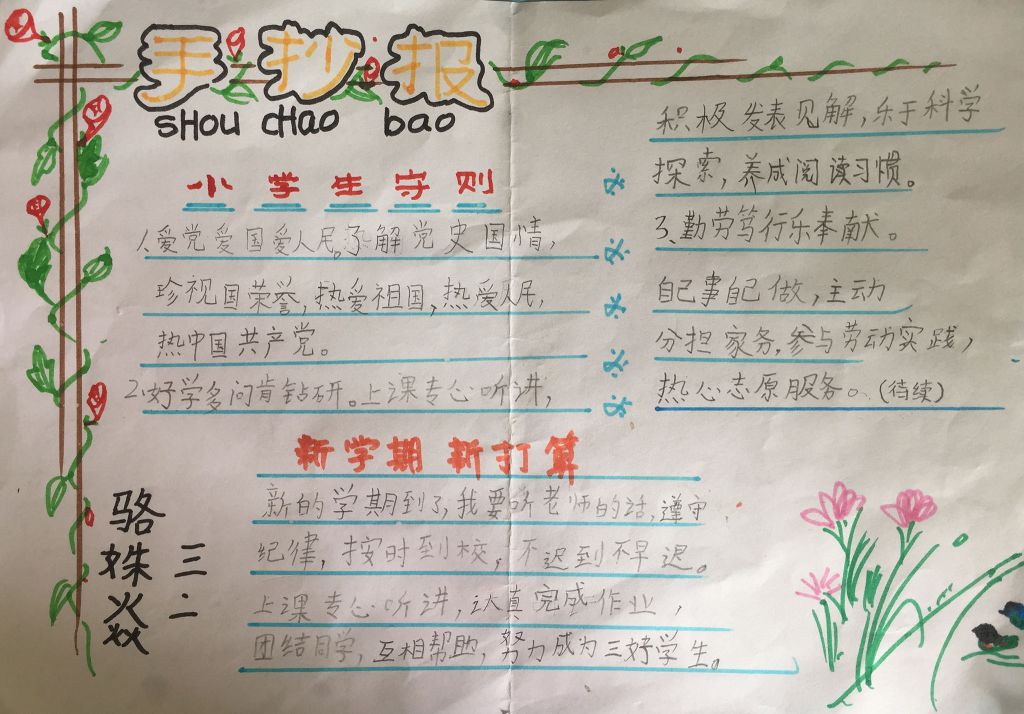 手抄报
SHOU CHAO bao
小学生守则
1、爱党爱国爱人民。了解党史国情，
珍视国荣誉，热爱祖国，热爱人民，
热中国共产党。
2、好学多问肯钻研。上课专心听讲，
积极发表见解，乐于科学
探索，养成阅读习惯。
3、勤劳笃行乐奉献。
自己事自己做，主动
分担家务，参与劳动实践，
热心志原服务。(待续)
新学期 新打算
新的学期到了，我要听老师的话，遵守
纪律，按时到校，不迟到不早迟。
上课专心听讲，认真完成作业，
团结同学，互相帮助，努力成为三好学生。
骆姝焱
三二